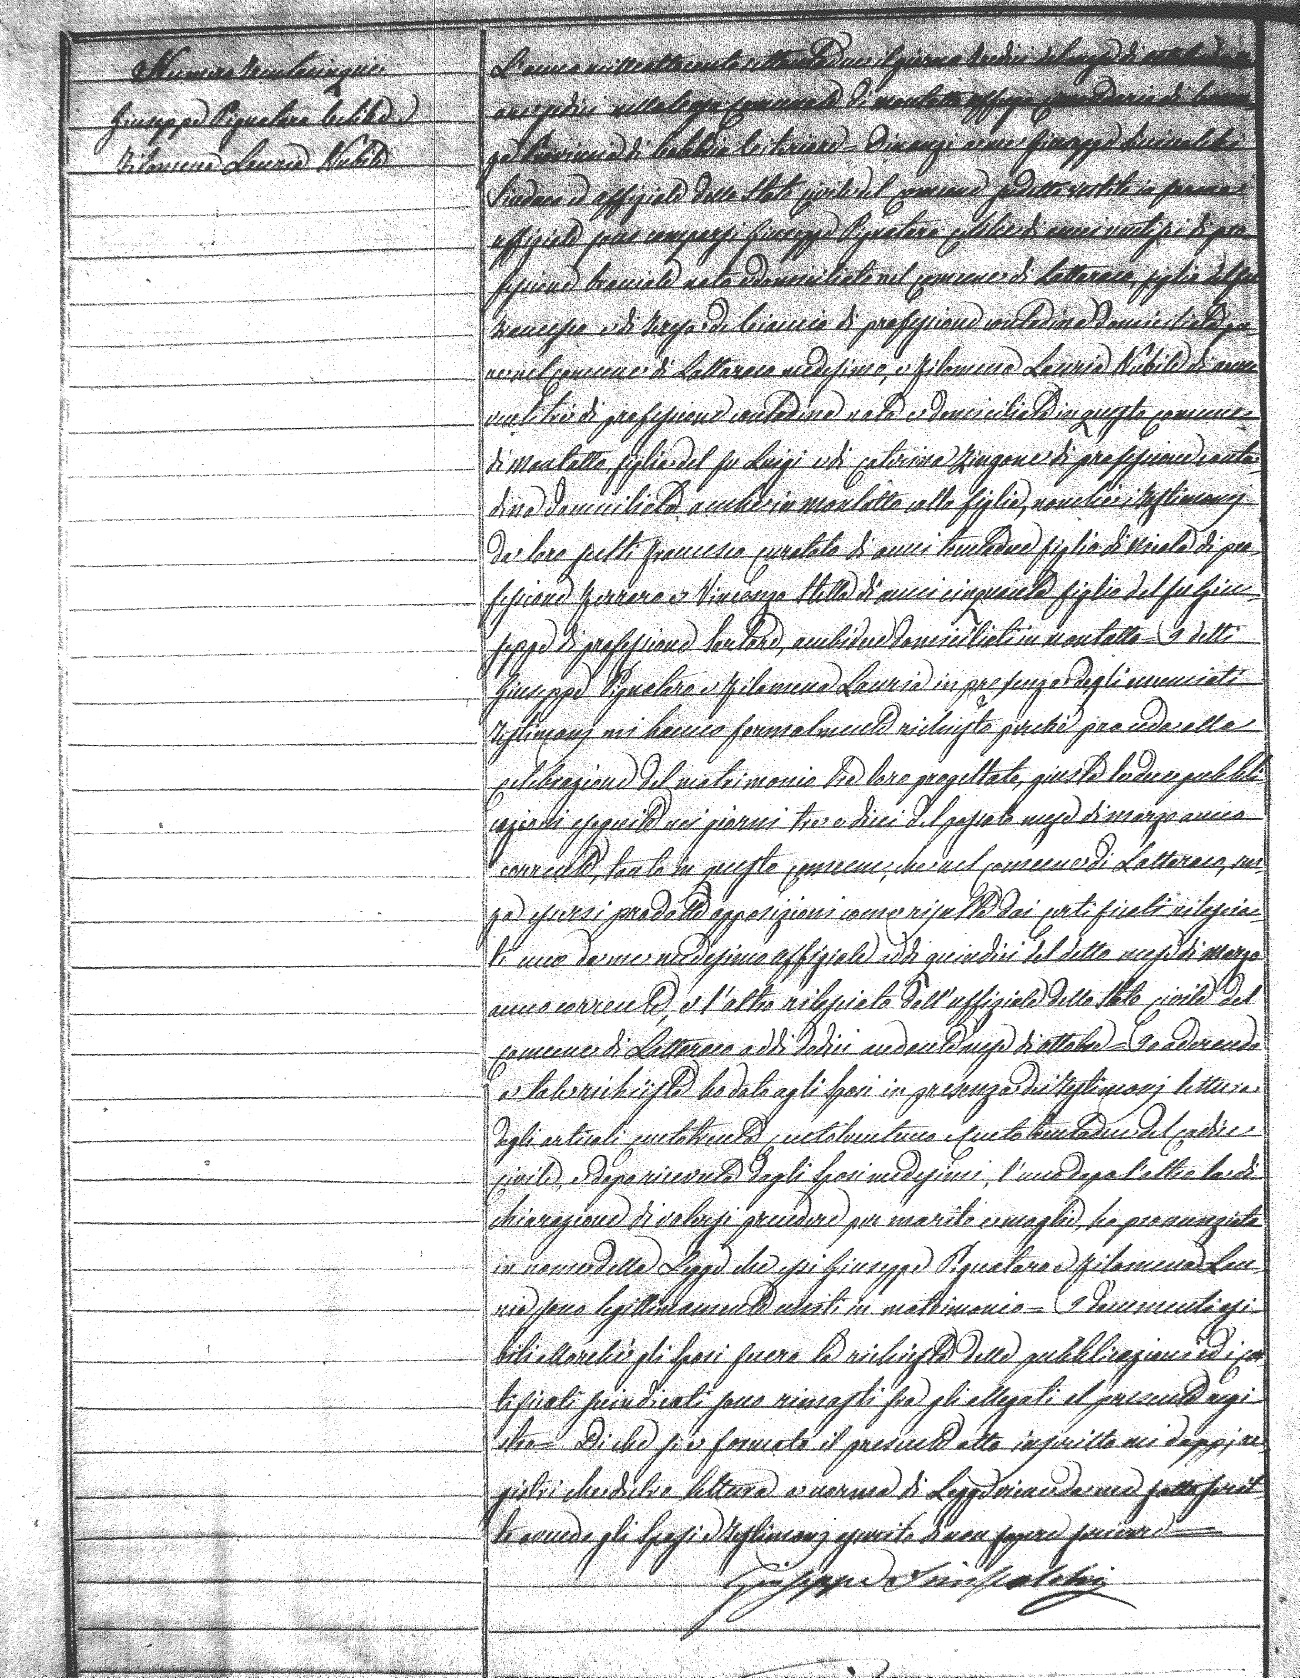 Numero trentacinque
Giuseppe Pignataro Celibe e
Filomena Lauria Nubile
L'anno milleottocento settantadue il giorno dodici del mese di ottobre
ore sedici nella casa comunale di Montalto Uffugo Circondario di Cosen-
za Provincia di Calabria Citeriore = Dinanzi a me Giuseppe
Sindaco ed uffiziale dello Stato civile del comune sudetto vestito in forma
uffiziale sono comparsi Giuseppe Pignataro celibe di anni ventisei di pro-
fessione bracciale nato e domiciliato nel comune di Lattaraco, figlio del fu
Francesco e di Teresa de Ciancio di professione contadina domiciliata pu-
re nel comune di Lattaraco medesimo, e Filomena Lauria Nubile di anni
venti tre di professione contadina nata e domiciliata in questo comune
di Montalto figlia del fu Luigi e di Caterina Zingone di professione conta-
dina domiciliata anche in Montalto colla figlia, nonché i testimonj
da loro scelti Francesco Curatolo di anni trentadue figlio di Nicola di pro-
fessione Ferraro e Vincenzo Stella di anni cinquanta figlio del fu Giu-
seppe di professione Sartore, ambidue domiciliati in Montalto = I detti
Giuseppe Pignataro e Filomena Lauria in presenza degli enunciati
testimonj mi hanno formalmente richiesto perché proceda alla
celebrazione del matrimonio tra loro progettato, giusta le due pubbli-
cazioni eseguite nei giorni tre e dieci del passato mese di marzo anno
corrente, tanto in questo comune, che nel comune di Lattaraco, sen-
za essersi prodotte opposizioni come risulta dai certificati rilascia-
ti uno da me medesimo uffiziale addì quindici del detto mese di marzo
anno corrente, e l'altro rilasciato dall'uffiziale dello Stato civile del
comune di Lattaraco addì dodici andante mese di ottobre = Io aderendo
a tale richiesta ho dato agli sposi in presenza dei testimonj lettura
degli articoli centotrenta, centotrentuno e centotrentadue del codice
civile, e dopo ricevuta dagli sposi medesimi, l'uno dopo l'altro la di-
chiarazione di volersi prendere per marito e moglie, ho pronunziato
in nome della Legge che essi Giuseppe Pignataro e Filomena Lau-
ria sono legittimamente uniti in matrimonio = I documenti esi-
biti allorché gli sposi fecero la richiesta delle pubblicazioni ed i cer-
tificati succitati sono rimasti fra gli allegati al presente regi-
stro = Di che si è formato il presente atto inscritto nei doppj re-
gistri che dietro lettura a norma di Legge viene da me sottoscrit-
to avendo gli Sposi e Testimonj asserito di non sapere scrivere =
Giuseppe